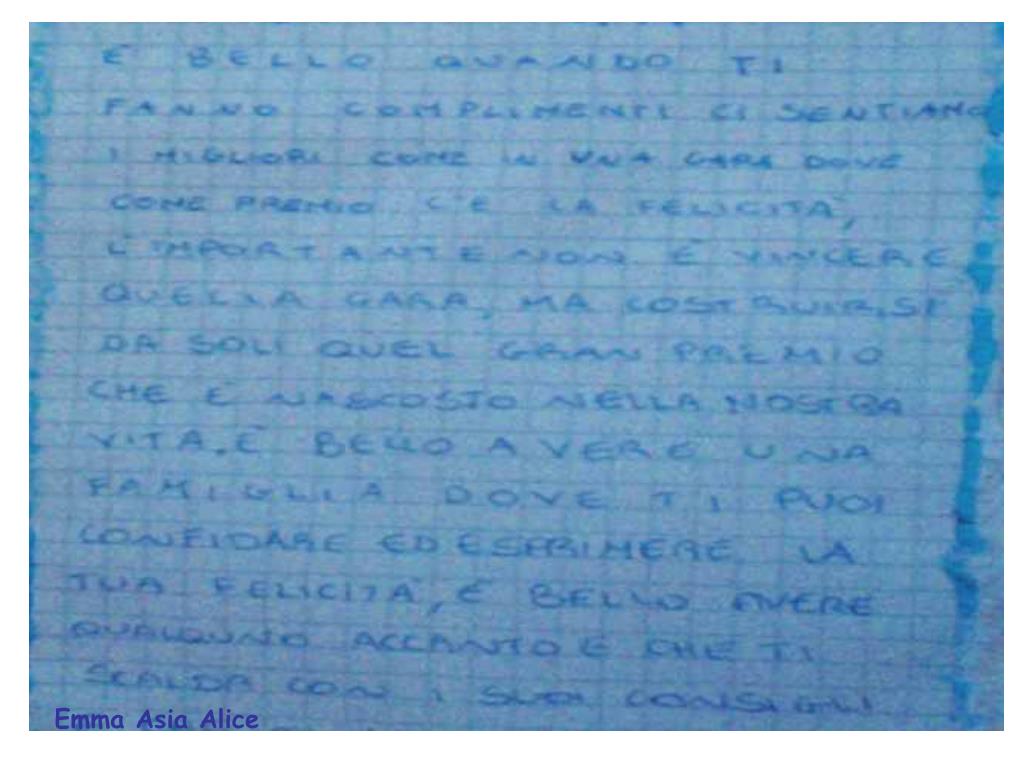 È BELLO QUANDO TI
FANNO COMPLIMENTI CI SENTIAMO
I MIGLIORI COME IN UNA GARA DOVE
COME PREMIO C'È LA FELICITÀ,
L'IMPORTANTE NON È VINCERE
QUELLA GARA, MA COSTRUIRSI
DA SOLI QUEL GRAN PREMIO
CHE È NASCOSTO NELLA NOSTRA
VITA. È BELLO AVERE UNA
FAMIGLIA DOVE TI PUOI
CONFIDARE ED ESPRIMERE LA
TUA FELICITÀ, È BELLO AVERE
QUALCUNO ACCANTO E CHE TI
SCALDA CON I SUOI CONSIGLI
Emma Asia Alice